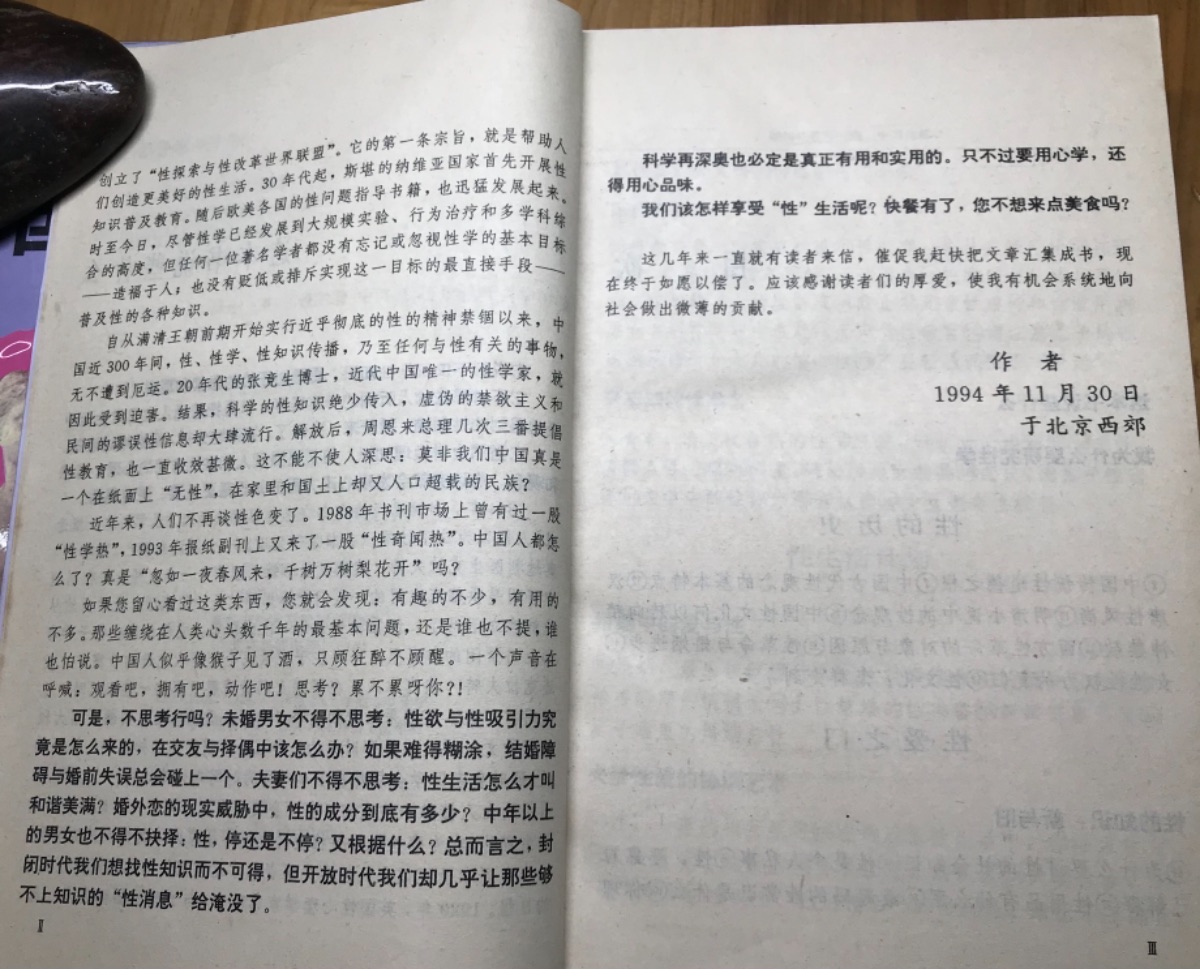 创立了“性探索与性改革世界联盟”。它的第一条宗旨，就是帮助人
们创造更美好的性生活。30年代起，斯堪的纳维亚国家首先开展性
知识普及教育。随后欧美各国的性问题指导书籍，也迅猛发展起来。
时至今日，尽管性学已经发展到大规模实验、行为治疗和多学科综
合的高度，但任何一位著名学者都没有忘记或忽视性学的基本目标
——造福于人；也没有贬低或排斥实现这一目标的最直接手段——
普及性的各种知识。
自从满清王朝前期开始实行近乎彻底的性的精神禁锢以来，中
国近300年间，性、性学、性知识传播，乃至任何与性有关的事物，
无不遭到厄运。20年代的张竞生博士，近代中国唯一的性学家，就
因此受到迫害。结果，科学的性知识绝少传入，虚伪的禁欲主义和
民间的谬误性信息却大肆流行。解放后，周恩来总理几次三番提倡
性教育，也一直收效甚微。这不能不使人深思：莫非我们中国真是
一个在纸面上“无性”，在家里和国土上却又人口超载的民族？
近年来，人们不再谈性色变了。1988年书刊市场上曾有过一股
“性学热”，1993年报纸副刊上又来了一股“性奇闻热”。中国人都怎
么了？真是“忽如一夜春风来，千树万树梨花开”吗？
如果您留心看过这类东西，您就会发现：有趣的不少，有用的
不多。那些缠绕在人类心头数千年的最基本问题，还是谁也不提，谁
也怕说。中国人似乎像猴子见了酒，只顾狂醉不顾醒。一个声音在
呼喊：观看吧，拥有吧，动作吧！思考？累不累呀你？！
可是，不思考行吗？未婚男女不得不思考：性欲与性吸引力究
竟是怎么来的，在交友与择偶中该怎么办？如果难得糊涂，结婚障
碍与婚前失误总会碰上一个。夫妻们不得不思考：性生活怎么才叫
和谐美满？婚外恋的现实威胁中，性的成分到底有多少？中年以上
的男女也不得不抉择：性，停还是不停？又根据什么？总而言之，封
闭时代我们想找性知识而不可得，但开放时代我们却几乎让那些够
不上知识的“性消息”给淹没了。
Ⅱ
科学再深奥也必定是真正有用和实用的。只不过要用心学，还
得用心品味。
我们该怎样享受“性”生活呢？快餐有了，您不想来点美食吗？
这几年来一直就有读者来信，催促我赶快把文章汇集成书，现
在终于如愿以偿了。应该感谢读者们的厚爱，使我有机会系统地向
社会做出微薄的贡献。
作 者
1994 年 11 月 30 日
于北京西郊
Ⅲ